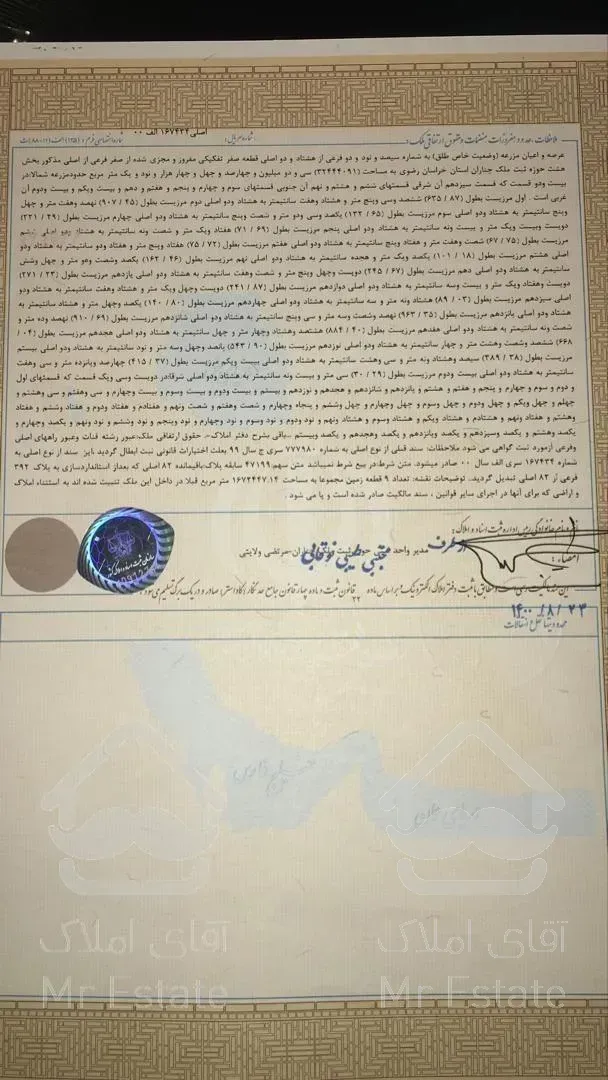 ملاحظات، حدود، مفروزات، مشخصات و حقوق ارتفاقی ملک:
شماره سریال:
شماره اختصاصی فرم: (۱۲۵) الف (۱۲-۸۸) ث
اصلی ۱۶۷۴۳۴ الف ۰۰
عرصه و اعیان مزرعه (وضعیت خاص طلق) به شماره سیصد و نود و دو فرعی از هشتاد و دو اصلی قطعه صفر تفکیکی مفروز و مجزی شده از صفر فرعی از اصلی مذکور بخش
هشت حوزه ثبت ملک چناران استان خراسان رضوی به مساحت (۳۲۴۴۴۰۹۱) سی و دو میلیون و چهارصد و چهل و چهار هزار و نود و یک متر مربع حدودمزرعه شمالا:در
بیست ودو قسمت که قسمت سیزدهم آن شرقی قسمتهای ششم و هشتم و نهم آن جنوبی قسمتهای سوم و چهارم و پنجم و هفتم و دهم و بیست ویکم و بیست ودوم آن
غربی است . اول مرزیست بطول (۸۷ / ۶۳۵) ششصد وسی وپنج متر و هشتاد وهفت سانتیمتر به هشتاد ودو اصلی دوم مرزیست بطول (۴۵ / ۹۰۷) نهصد وهفت متر و چهل
وپنج سانتیمتر به هشتاد ودو اصلی سوم مرزیست بطول (۶۵ / ۱۳۲) یکصد وسی ودو متر و شصت وپنج سانتیمتر به هشتاد ودو اصلی چهارم مرزیست بطول (۲۹ / ۲۲۱)
دویست وبیست ویک متر و بیست ونه سانتیمتر به هشتاد ودو اصلی پنجم مرزیست بطول (۶۹ / ۷۱) هفتاد ویک متر و شصت ونه سانتیمتر به هشتاد ودو اصلی ششم
مرزیست بطول (۷۵ / ۶۷) شصت وهفت متر و هفتاد وپنج سانتیمتر به هشتاد ودو اصلی هفتم مرزیست بطول (۷۲ / ۷۵) هفتاد وپنج متر و هفتاد ودو سانتیمتر به هشتاد ودو
اصلی هشتم مرزیست بطول (۱۸ / ۱۰۱) یکصد ویک متر و هجده سانتیمتر به هشتاد ودو اصلی نهم مرزیست بطول (۴۶ / ۱۶۲) یکصد وشصت ودو متر و چهل وشش
سانتیمتر به هشتاد ودو اصلی دهم مرزیست بطول (۶۷ / ۲۴۵) دویست وچهل وپنج متر و شصت وهفت سانتیمتر به هشتاد ودو اصلی یازدهم مرزیست بطول (۲۳ / ۲۷۱)
دویست وهفتاد ویک متر و بیست وسه سانتیمتر به هشتاد ودو اصلی دوازدهم مرزیست بطول (۸۷ / ۲۴۱) دویست وچهل ویک متر و هشتاد وهفت سانتیمتر به هشتاد ودو
اصلی سیزدهم مرزیست بطول (۰۳ / ۸۹) هشتاد ونه متر و سه سانتیمتر به هشتاد ودو اصلی چهاردهم مرزیست بطول (۸۰ / ۱۴۰) یکصد وچهل متر و هشتاد سانتیمتر به
هشتاد ودو اصلی پانزدهم مرزیست بطول (۳۵ / ۹۶۳) نهصد وشصت وسه متر و سی وپنج سانتیمتر به هشتاد ودو اصلی شانزدهم مرزیست بطول (۶۹ / ۹۱۰) نهصد وده متر و
شصت ونه سانتیمتر به هشتاد ودو اصلی هفدهم مرزیست بطول (۴۰ / ۸۸۴) هشتصد وهشتاد وچهار متر و چهل سانتیمتر به هشتاد ودو اصلی هجدهم مرزیست بطول (۰۴ /
۶۶۸) ششصد وشصت وهشت متر و چهار سانتیمتر به هشتاد ودو اصلی نوزدهم مرزیست بطول (۹۰ / ۵۴۳) پانصد وچهل وسه متر و نود سانتیمتر به هشتاد ودو اصلی بیستم
مرزیست بطول (۳۸ / ۳۸۹) سیصد وهشتاد ونه متر و سی وهشت سانتیمتر به هشتاد ودو اصلی بیست ویکم مرزیست بطول (۳۷ / ۴۱۵) چهارصد وپانزده متر و سی وهفت
سانتیمتر به هشتاد ودو اصلی بیست ودوم مرزیست بطول (۲۹ / ۳۰) سی متر و بیست ونه سانتیمتر به هشتاد ودو اصلی شرقا:در دویست وسی ویک قسمت که قسمتهای اول
و دوم و سوم و چهارم و پنجم و هفتم و هشتم و پانزدهم و شانزدهم و هجدهم و نوزدهم و بیستم و بیست ودوم و بیست وسوم و بیست وچهارم و سی وهفتم و سی وهشتم و
چهلم و چهل ویکم و چهل ودوم و چهل وسوم و چهل وچهارم و چهل وششم و پنجاه وچهارم و شصت وهفتم و شصت ونهم و هفتادم و هفتاد ودوم و هفتاد وششم و هفتاد
وهشتم و هفتاد ونهم و هشتادم و هشتاد ویکم و هشتاد وسوم و هشتاد ونهم و نود ودوم و نود وسوم و نود وچهارم و نود وپنجم و نود وششم و نود ونهم و یکصد وچهارم و
یکصد وهشتم و یکصد وسیزدهم و یکصد وپانزدهم و یکصد وهجدهم و یکصد وبیستم ...باقی بشرح دفتر املاک... حقوق ارتفاقی ملک:عبور رشته قنات وعبور راههای اصلی
وفرعی ازمورد ثبت گواهی می شود ملاحظات: سند قبلی از نوع اصلی به شماره ۷۷۷۹۸۰ سری ج سال ۹۹ بعلت اختیارات قانونی ثبت ابطال گردید ،این سند از نوع اصلی به
شماره ۱۶۷۴۳۴ سری الف سال ۰۰ صادر میشود. متن شرط:در بیع شرط نمیباشد متن سهم:۴۷۱۹۹ سابقه پلاک:باقیمانده ۸۲ اصلی که بعداز استانداردسازی به پلاک ۳۹۲
فرعی از ۸۲ اصلی تبدیل گردید. توضیحات نقشه: تعداد ۹ قطعه زمین مجموعا به مساحت ۱۶۷۲۴۴۷.۱۴ متر مربع قبلا در داخل این ملک تثبیت شده اند به استثناء املاک
و اراضی که برای آنها در اجرای سایر قوانین ، سند مالکیت صادر شده است و یا می شود .
نام و نام خانوادگی رئیس اداره ثبت اسناد و املاک:
مدیر واحد ثبتی حوزه ثبت ملک چناران-مرتضی ولایتی
از طرف
مجتبی طیبی نوقابی
امضاء :
این سند مالکیت رسمی است و مطابق با ثبت دفتر املاک الکترونیک و بر اساس ماده ۲۲ قانون ثبت و ماده چهار قانون جامع حد نگار (کاداستر) صادر و در یک برگ تسلیم می شود.
۱۴۰۰/۸/۲۳
محدودیتها / نقل و انتقالات
آقای املاک
Mr Estate
آقای املاک
Mr Estate